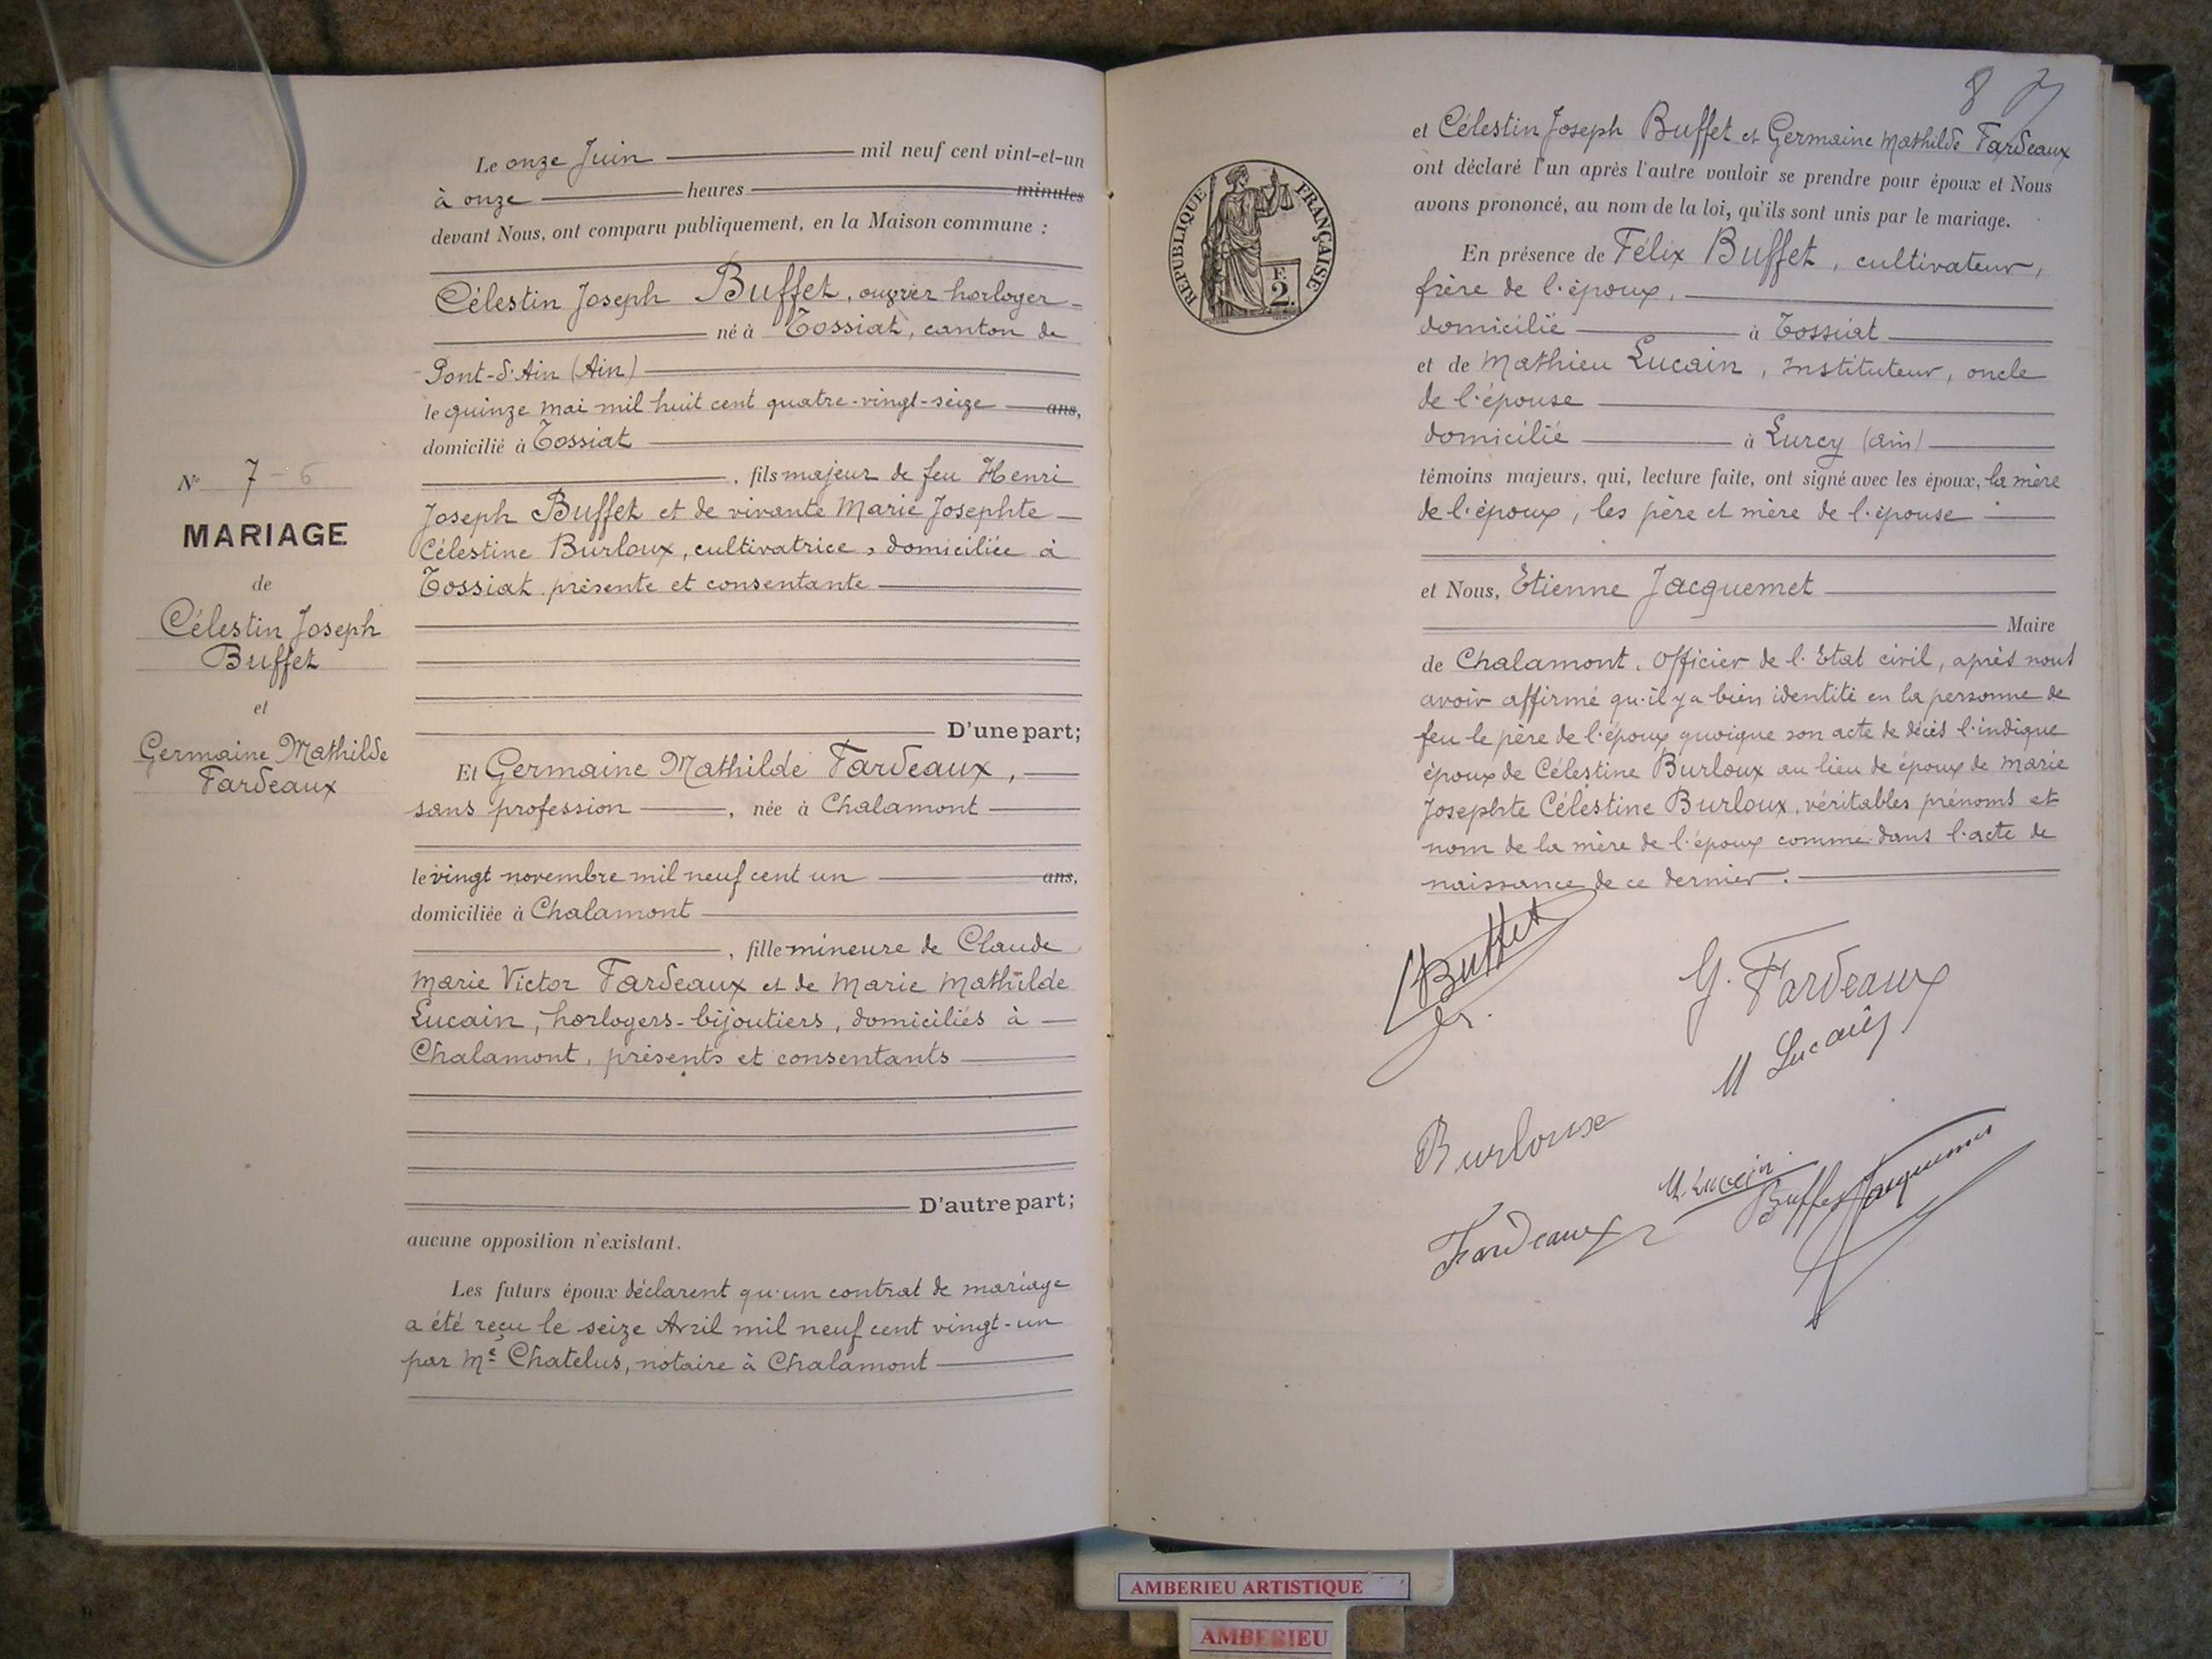 Le onze Juin mil neuf cent vint-et-un
à onze heures minutes
devant Nous, ont comparu publiquement, en la Maison commune :
Célestin Joseph Buffet, ouvrier horloger
né à Tossiat, canton de
Pont-d'Ain (Ain)
le quinze mai mil huit cent quatre-vingt-seize ans,
domicilié à Tossiat
, fils majeur de feu Henri
Joseph Buffet et de vivante Marie Josephte
Célestine Burloux, cultivatrice, domiciliée à
Tossiat présente et consentante
D'une part;
Et Germaine Mathilde Fardeaux,
sans profession , née à Chalamont
le vingt novembre mil neuf cent un ans,
domiciliée à Chalamont
, fille mineure de Claude
Marie Victor Fardeaux et de Marie Mathilde
Lucain, horlogers-bijoutiers, domiciliés à
Chalamont, présents et consentants
D'autre part;
aucune opposition n'existant.
Les futurs époux déclarent qu'un contrat de mariage
a été reçu le seize Avril mil neuf cent vingt-un
par Me Chatelus, notaire à Chalamont
No 7 - 6
MARIAGE
de
Célestin Joseph
Buffet
et
Germaine Mathilde
Fardeaux
8
RÉPUBLIQUE FRANÇAISE
F.
2.
et Célestin Joseph Buffet et Germaine Mathilde Fardeaux
ont déclaré l'un après l'autre vouloir se prendre pour époux et Nous
avons prononcé, au nom de la loi, qu'ils sont unis par le mariage.
En présence de Félix Buffet, cultivateur,
frère de l'époux,
domicilié à Tossiat
et de Mathieu Lucain, Instituteur, oncle
de l'épouse
domicilié à Lurcy (Ain)
témoins majeurs, qui, lecture faite, ont signé avec les époux, la mère
de l'époux, les père et mère de l'épouse
et Nous, Etienne Jacquemet
Maire
de Chalamont, Officier de l'Etat civil, après nous
avoir affirmé qu'il y a bien identité en la personne de
feu le père de l'époux quoique son acte de décès l'indique
époux de Célestine Burloux au lieu de époux de Marie
Josephte Célestine Burloux, véritables prénoms et
nom de la mère de l'époux comme dans l'acte de
naissance de ce dernier.
Buffet
G. Fardeaux
M Lucain
Burloux
M. Lucain
Buffet Jacquemet
Fardeaux
AMBERIEU ARTISTIQUE
AMBERIEU